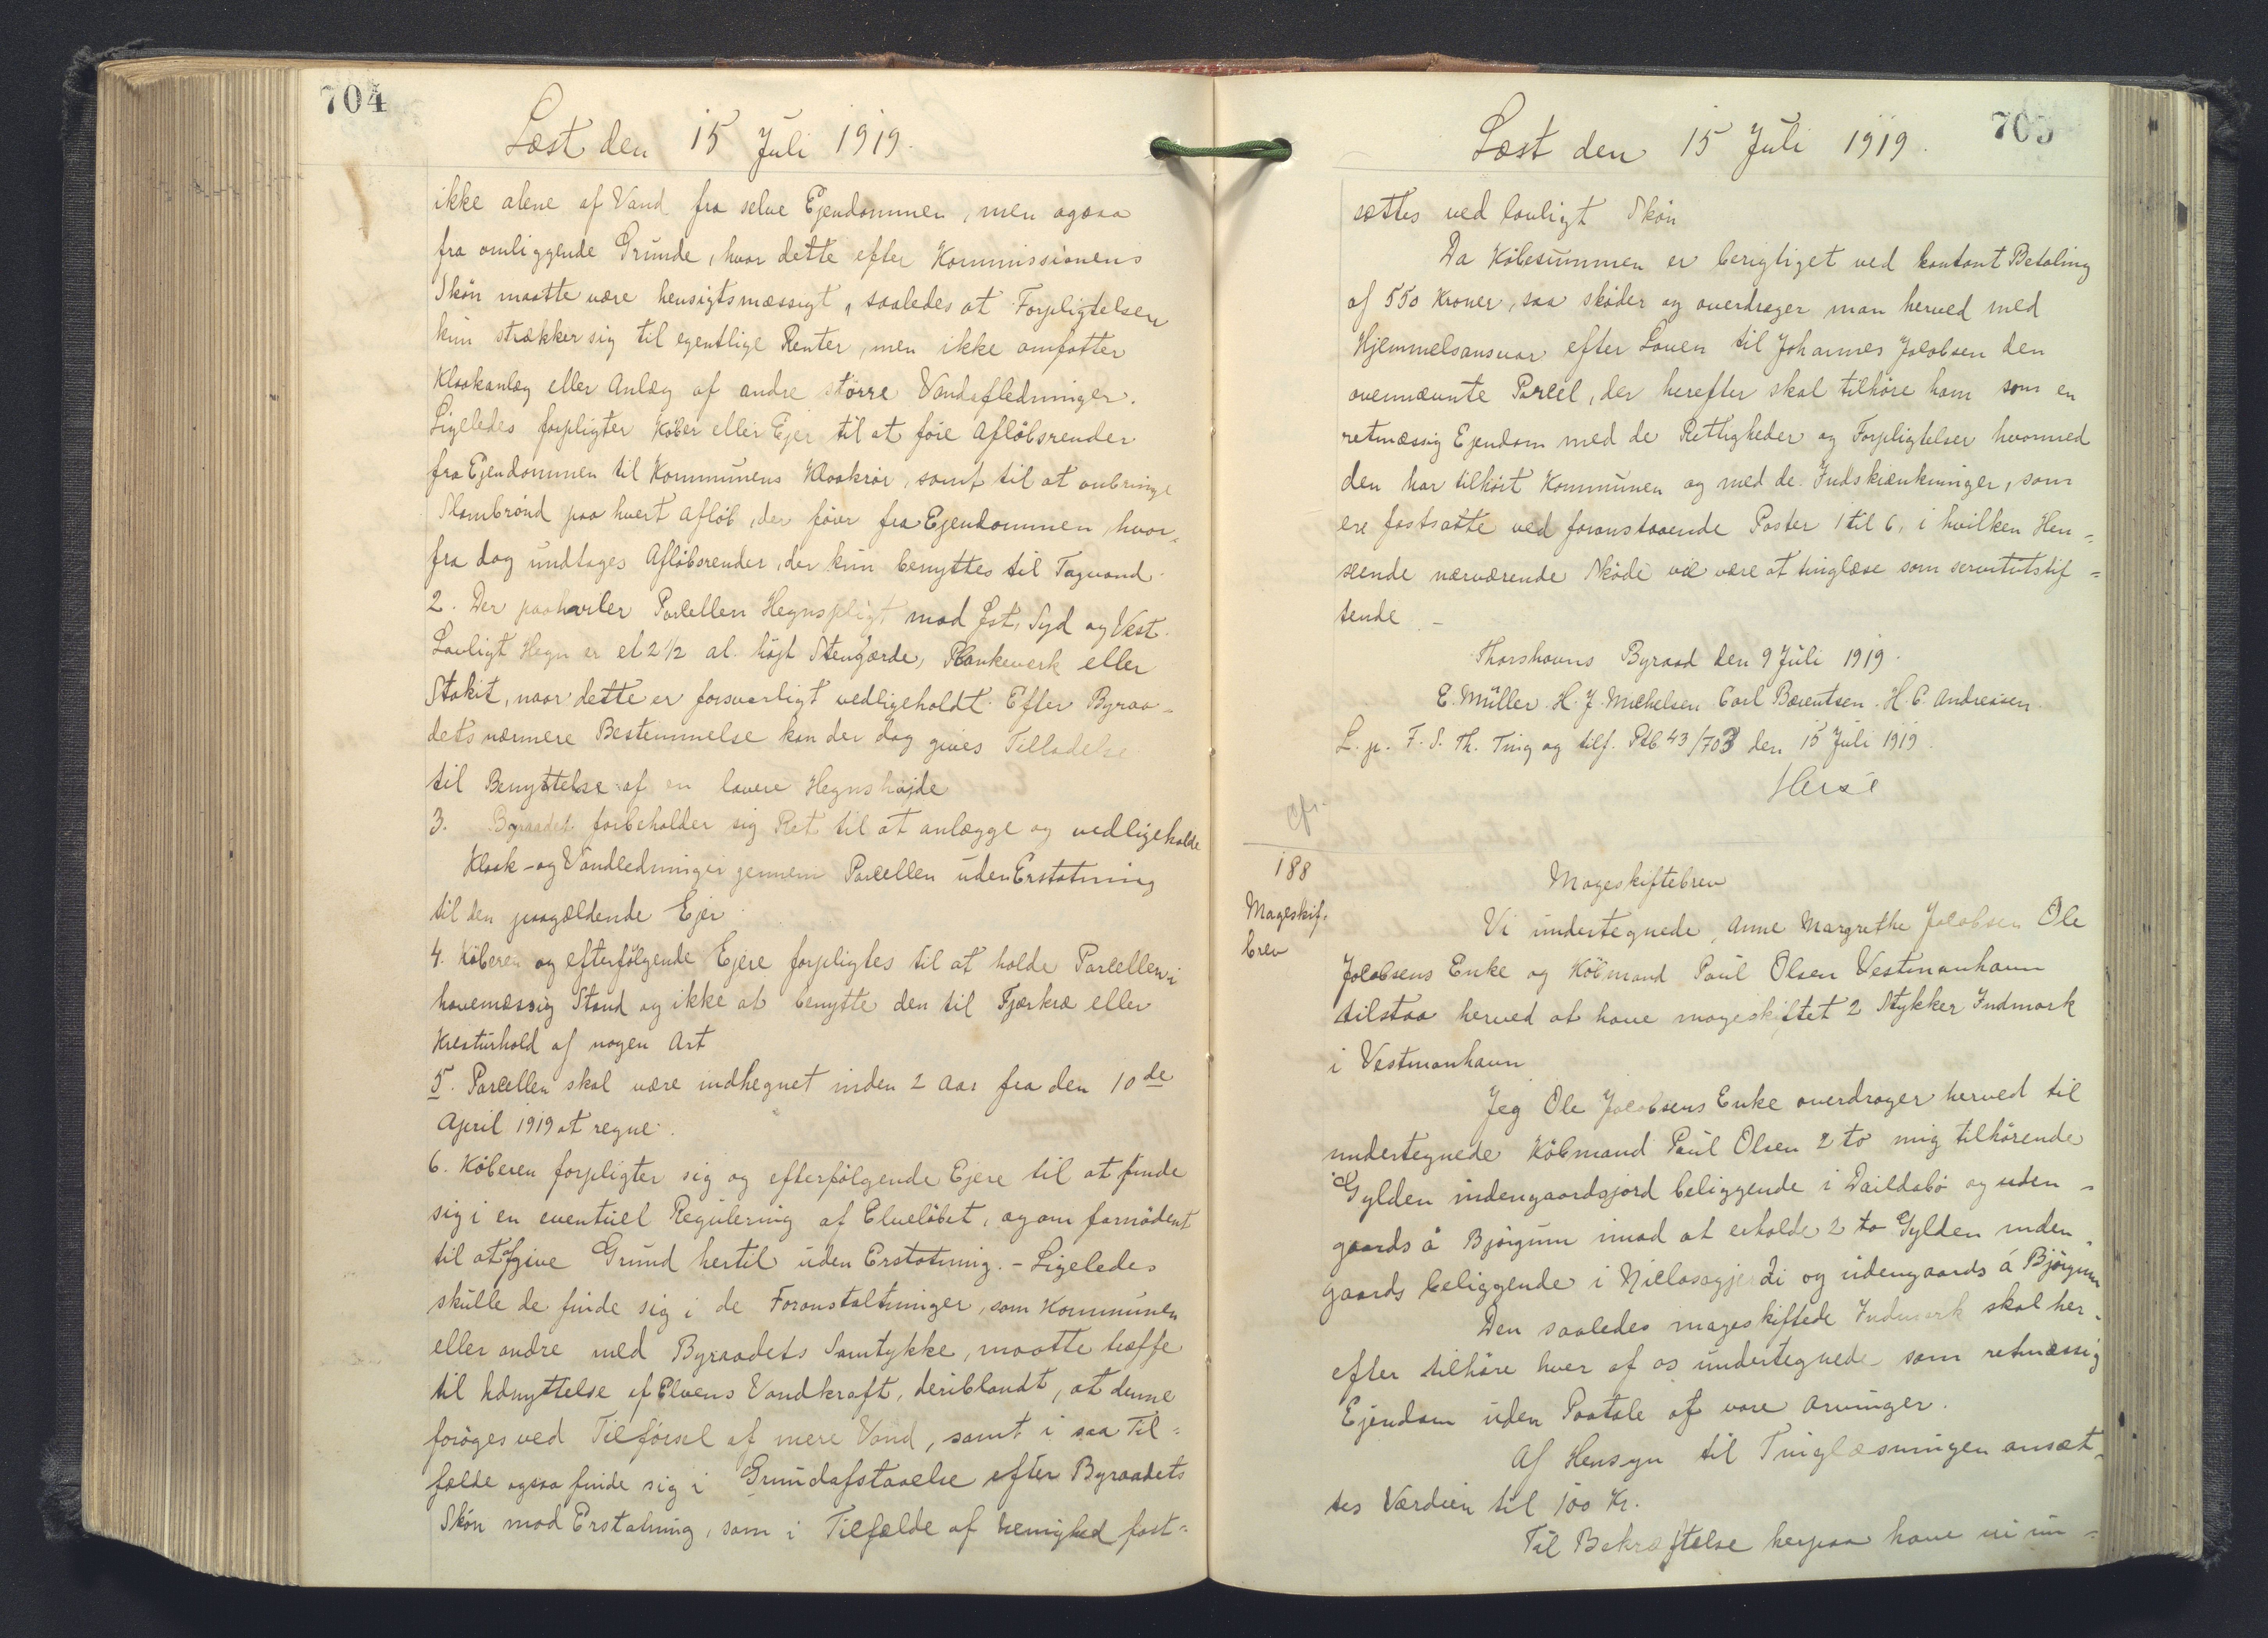 704
Læst den 15 Juli 1919.
ikke alene af Vand fra selve Ejendommen, men ogsaa
fra omliggende Grunde, hvor dette efter Kommissionens
Skön maatte være hensigtsmæssigt, saaledes at Forpligtelsen
kun strækker sig til egentlige Renter, men ikke omfatter
Kloakanlæg eller Anlæg af andre större Vandafledninger.
Ligeledes forpligter Köber eller Ejer til at före Aflöbsrender
fra Ejendommen til Kommunens Kloakrör, samt til at anbringe
Slambrönd paa hvert Aflöb, der förer fra Ejendommen, hvor-
fra dog undtages Aflöbsrender, der kun benyttes til Tagvand.
2. Der paahviler Parcellen Hegnspligt mod Øst, Syd og Vest.
Lovligt Hegn er et 2 1/2 al. höjt Stengærde, Plankeverk eller
Stakit, naar dette er forsvarligt vedligeholdt. Efter Byraa-
dets nærmere Bestemmelse kan der dog gives Tilladelse
til Benyttelse af en lavere Hegnshöjde
3. Byraadet forbeholder sig Ret til at anlægge og vedligeholde
Kloak- og Vandledninger gennem Parcellen uden Erstatning
til den paagældende Ejer.
4. Köberen og efterfölgende Ejere forpligtes til at holde Parcellen i
havemæssig Stand og ikke at benytte den til Fjærkræ eller
Kreaturhold af nogen Art
5. Parcellen skal være indhegnet inden 2 Aar fra den 10de
April 1919 at regne.
6. Köberen forpligter sig og efterfölgende Ejere til at finde
sig i en eventuel Regulering af Elvelöbet, og om fornödent
til at afgive Grund hertil uden Erstatning. - Ligeledes
skulle de finde sig i de Foranstaltninger, som Kommunen
eller andre med Byraadets Samtykke, maatte træffe
til Udnyttelse af Elvens Vandkraft, deriblandt, at denne
foröges ved Tilförsel af mere Vand, samt i saa Til-
fælde ogsaa finde sig i Grundafstaaelse efter Byraadets
Skön mod Erstatning, som i Tilfælde af Uenighed fast-
705
Læst den 15 Juli 1919.
sættes ved lovligt Skön
Da Köbesummen er berigtiget ved kontant Betaling
af 550 Kroner, saa sköder og overdrager man herved med
Hjemmelsansvar efter Loven til Johannes Jacobsen den
ovennævnte Parcel, der herefter skal tilhöre ham som en
retmæssig Ejendom med de Rettigheder og Forpligtelser hvormed
den har tilhört Kommunen og med de Indskrænkninger, som
ere fastsatte ved foranstaaende Poster 1 til 6, i hvilken Hen-
seende nærværende Sköde vil være at tinglæse som servitutstif-
tende -
Thorshavns Byraad den 9 Juli 1919.
E. Müller. H. J. Michelsen Carl Bærentsen. H. C. Andreasen.
L. p. F. S. Th. Ting og tilf. Ptb. 43/703 den 15 Juli 1919.
cfr.
188
Mageskif-
brev
Mageskiftebrev
Vi undertegnede, Anne Margrethe Jacobsen Ole
Jacobsens Enke og Köbmand Poul Olsen Vestmanhavn
tilstaa herved at have mageskiftet 2 Stykker Indmark
i Vestmanhavn
Jeg Ole Jacobsens Enke overdrager herved til
undertegnede Köbmand Poul Olsen 2 to mig tilhörende
Gylden indengaardsjord beliggende i Daildabö og uden-
gaards á Bjørgum imod at erholde 2 to Gylden inden-
gaards beliggende i Niclasagjerdi og udengaards á Bjørgum
Den saaledes mageskiftede Indmark skal her-
efter tilhöre hver af os undertegnede som retmæssig
Ejendom uden Paatale af vore Arvinger.
Af Hensyn til Tinglæsningen ansæt-
tes Værdien til 100 Kr.
Til Bekræftelse herpaa have vi un-